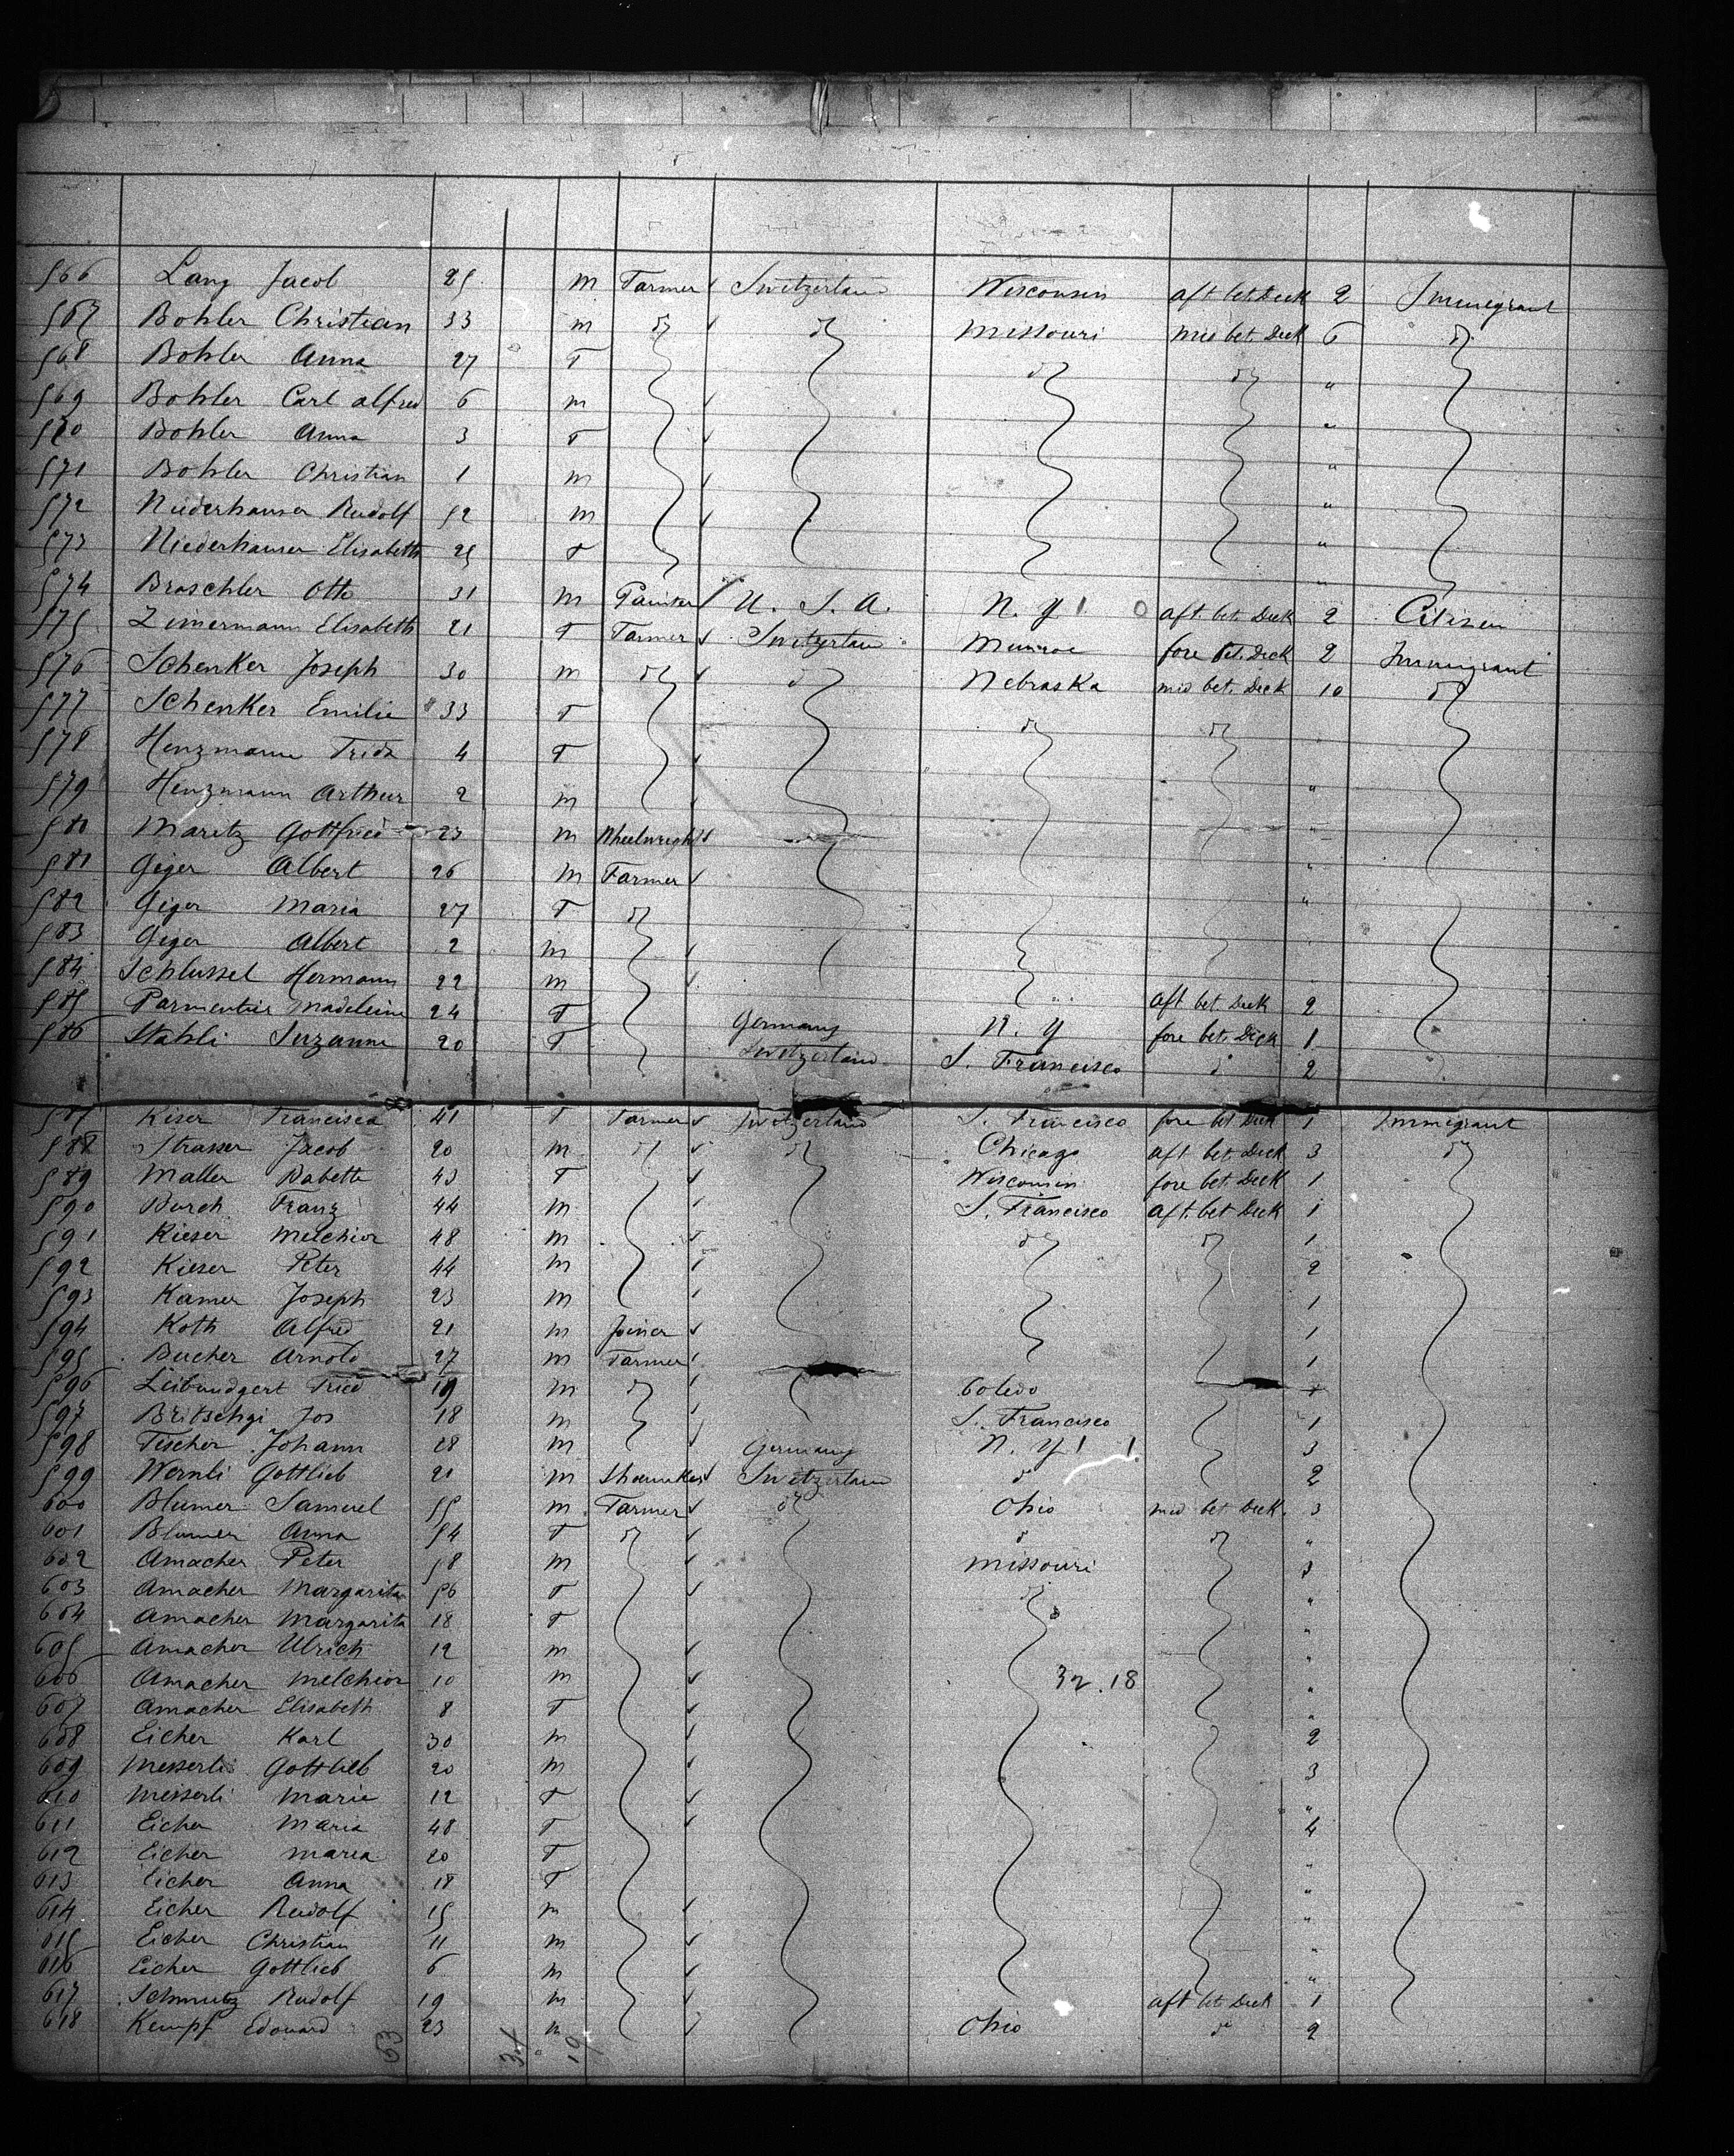 566 Lang Jacob 25 m Farmer Switzerland Wisconsin aft bet. Deck 2 Immigrant
567 Bohler Christian 33 m do do Missouri mid bet. Deck 6 do
568 Bohler Anna 27 F do do "
569 Bohler Carl alfred 6 m "
570 Bohler Anna 3 F "
571 Bohler Christian 1 m "
572 Niederhauser Rudolf 52 m "
573 Niederhauser Elisabeth 25 F "
574 Braschler Otto 31 m Painter U. S. A. N. Y aft. bet. Deck 2 Citizen
575 Zimermann Elisabeth 21 F Farmer Switzerland Munroe fore bet. Deck 2 Immigrant
576 Schenker Joseph 30 m do do Nebraska mid bet. Deck 10 do
577 Schenker Emilie 33 F do do
578 Henzmann Frida 4 F
579 Henzmann Arthur 2 m "
580 Maritz Gottfried 23 m Wheelwright "
581 Geiger Albert 26 m Farmer "
582 Geiger Maria 27 F do "
583 Geiger Albert 2 m
584 Schlussel Hermann 22 m
585 Parmentier Madeleine 24 F Germany N. Y aft bet Deck 2
586 Stahli Suzanne 20 F Switzerland S. Francisco fore bet. Deck 1
do 2
587 Kiser Francisca 41 F Farmer Switzerland S. Francisco fore bet Deck 1 Immigrant
588 Strasser Jacob 20 m do do Chicago aft bet Deck 3 do
589 Maller Babette 43 F Wisconsin fore bet Deck 1
590 Burch Franz 44 m S. Francisco aft. bet Deck 1
591 Kieser Melchior 48 m do do 1
592 Kieser Peter 44 m 2
593 Kamer Joseph 23 m 1
594 Koth Alfred 21 m Joiner 1
595 Bucher Arnold 27 m Farmer 1
596 Leibundgert Fried 19 m do Toledo
597 Britschgi Jos 18 m S. Francisco 1
598 Fischer Johann 28 m Germany N. Y 3
599 Wernli Gottlieb 21 m Shoemaker Switzerland do 2
600 Blumer Samuel 55 m Farmer do Ohio mid bet Deck 3
601 Blumer Anna 54 F do do do "
602 Amacher Peter 58 m Missouri
603 Amacher Margarita 56 F do "
604 Amacher Margarita 18 F "
605 Amacher Ulrich 12 m "
606 Amacher Melchior 10 m 32.18 "
607 Amacher Elisabeth 8 F "
608 Eicher Karl 30 m 2
609 Messerli Gottlieb 20 m 3
610 Messerli Marie 12 F "
611 Eicher Maria 48 F 4
612 Eicher maria 20 F "
613 Eicher Anna 18 F "
614 Eicher Rudolf 15 m "
615 Eicher Christian 11 m "
616 Eicher Gottlieb 6 m "
617 Schmutz Rudolf 19 m aft bet Deck 1
618 Kempf Edouard 23 m Ohio do 2
63 34 19